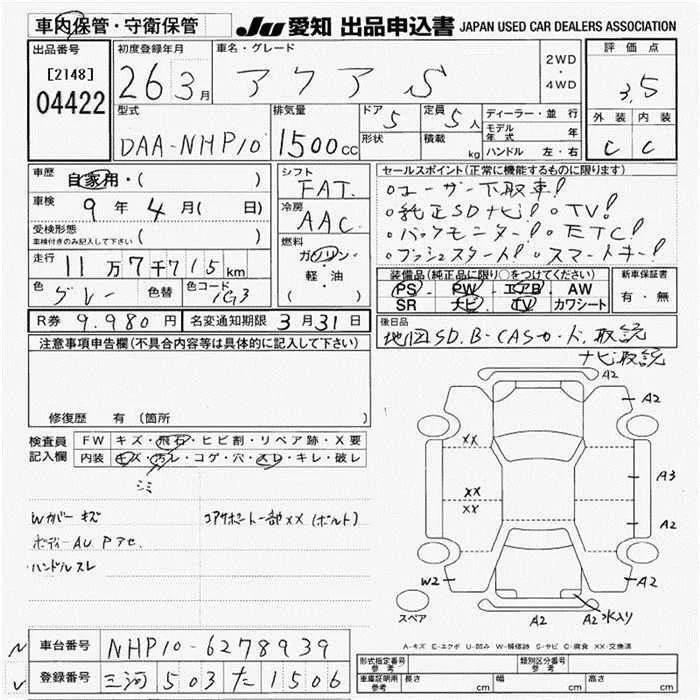 車内保管・守衛保管 JU 愛知 出品申込書 JAPAN USED CAR DEALERS ASSOCIATION
出品番号 [2148] 04422
初度登録年月 26 3月
車名・グレード アクア S
2WD ・ 4WD
評価点 3.5
外装 内装
C C
型式 DAA-NHP10
排気量 1500cc
ドア 5
形状
定員 5人
積載 kg
ディーラー・並行
モデル年式 年
ハンドル 左・右
車歴 自家用・( )
車検 9年 4月( 日)
受検形態
車検付きのみ記入して下さい ( )
走行 11万7千715km
色 グレー 色替 色コード 1G3
シフト FAT
冷房 AAC
燃料 ガソリン・軽・油 ( )
セールスポイント(正常に機能するものに限ります)
○ユーザー下取車!
○純正SDナビ! ○TV!
○バックモニター! ○ETC!
○プッシュスタート! ○スマートキー!
装備品(純正品に限り○をつけてください)
PS PW エアB AW
SR ナビ TV カワシート
新車保証書 有・無
R券 9.980円 名変通知期限 3月31日
後日品
地図SD.B-CASカード.取説
ナビ取説
注意事項申告欄(不具合内容等は具体的に記入して下さい)
修復歴 有 (箇所 )
検査員記入欄
FW キズ・飛石・ヒビ割・リペア跡・X要
内装 キズ・汚レ・コゲ・穴・スレ・キレ・破レ
シミ
Wカバー キズ
コアサポート一部XX(ボルト)
ボディーAU Pアセ.
ハンドルスレ
A2
A2
XX
A3
XX
XX
A2
W2
A2
A2 A2 水入り
スペア
A-キズ E-エクボ U-凹み W-補修跡 S-サビ C-腐食 XX-交換済
車台番号 NHP10-6278939
登録番号 三河 503 た 1506
形式指定番号 参考
類別区分番号 参考
車庫証明用 参考 長さ cm 幅 cm 高さ cm